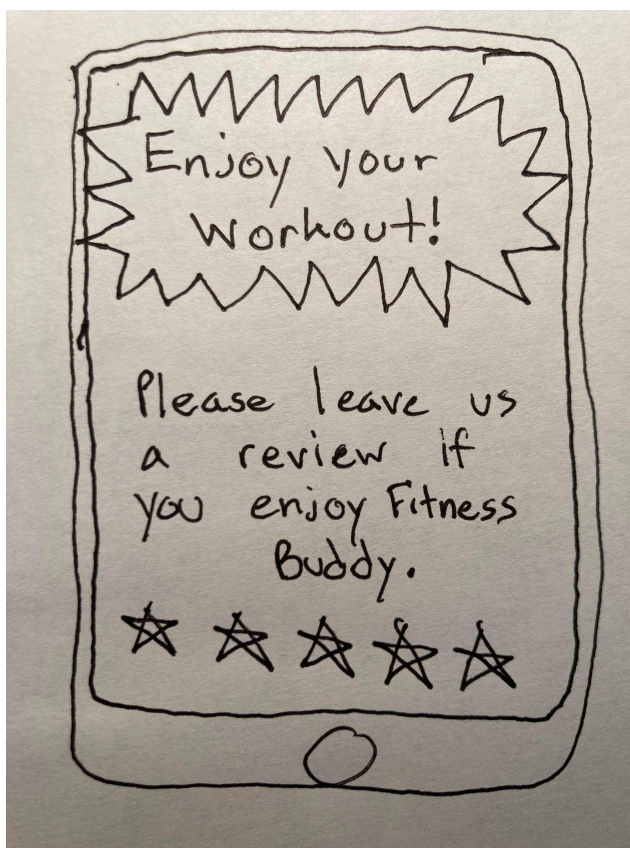 Enjoy your
Workout!
Please leave us
a review if
you enjoy Fitness
Buddy.